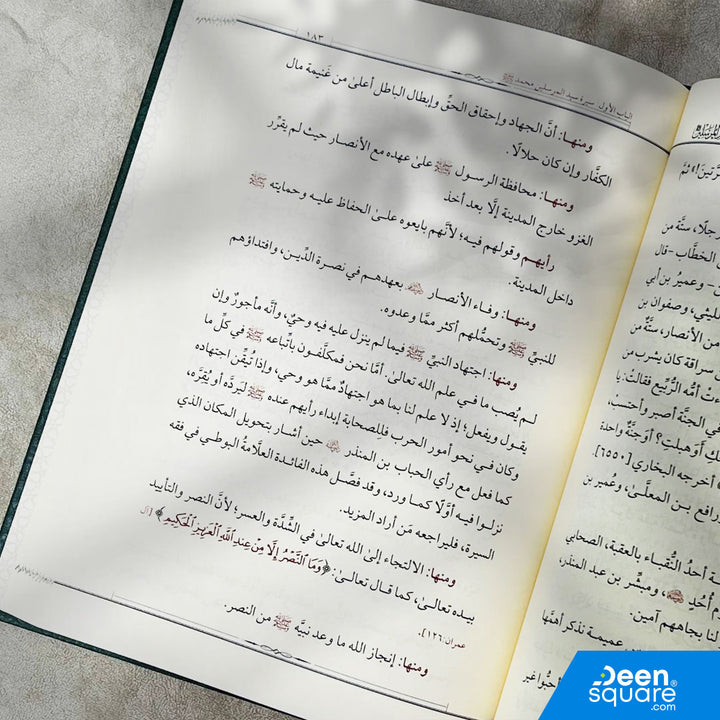 الباب الأول: سيرة سيد المرسلين محمد ﷺ
١٨٣
ومنها: أنَّ الجهاد وإحقاق الحقِّ وإبطال الباطل أعلىٰ من غَنيمة مال
الكفَّار وإن كان حلالًا.
ومنهـا: محافظة الرسـول ﷺ علىٰ عهده مع الأنصـار حيث لم يقرِّر
الغزو خارج المدينة إلَّا بعد أخذ
رأيهم وقولهم فيـه؛ لأنَّهم بايعوه علىٰ الحفاظ عليـه وحمايته ﷺ
داخل المدينة.
ومنهـا: وفـاء الأنصـار ﷺ بعهدهـم في نصـرة الدِّيـن، وافتداؤهم
للنبيِّ ﷺ وتحمُّلهم أكثر ممَّا وعدوه.
ومنها: اجتهاد النبيِّ ﷺ فيما لم ينزل عليه فيه وحيٌ، وأنَّه مأجورٌ وإن
لـم يُصب ما فـي علم الله تعالىٰ. أمَّا نحن فمكلَّفـون بأتِّباعه ﷺ في كلِّ ما
يقـول ويفعل؛ إذ لا علم لنا بما هو اجتهادٌ ممَّا هو وحي، وإذا تُيقِّن اجتهاده
وكان فـي نحو أمور الحرب فللصحابة إبداء رأيهم عنده ﷺ ليَردَّه أو يُقِرَّه،
كما فعل مع رأي الحباب بن المنذر حين أشـار بتحويل المكان الذي
نزلـوا فيـه أوَّلًا كمـا ورد، وقد فصَّـل هذه الفائـدة العلَّامة البوطـي في فقه
السيرة، فليراجعه مَن أراد المزيد.
ومنها: الالتجاء إلىٰ الله تعالىٰ في الشِّدَّة والعسر؛ لأنَّ النصر والتأييد
بيده تعالـىٰ، كما قـال تعالـىٰ: ﴿وَمَا ٱلنَّصْرُ إِلَّا مِنْ عِندِ ٱللَّهِ ٱلْعَزِيزِ ٱلْحَكِيمِ﴾ [آل
عمران: ١٢٦].
ومنها: إنجاز الله ما وعد نبيَّه ﷺ من النصر.
رَّتين!» ثمَّ
رجلًا، ستَّة من
الخطَّاب -قال
- وعميرُ بن أبي
الليثي، وصفوان بن
من الأنصار، ستَّةٌ من
سراقة كان يشرب من
أمُّه الرُّبيِّع فقالتْ: يا
في الجنَّة أصبر وأحتسبْ،
أوَهبلتِ؟ أوَجنَّةٌ واحدة
أخرجه البخاري [٦٥٥٠].
رافع بـن المعلَّـىٰ، وعُمير بن
أحدُ النُّقباء بالعقبة، الصحابي
أُحُدٍ، ومبشِّر بن عبد المنذر،
لنا بجاههم آمين.
عميمة نذكر أهمَّها
أحبُّوا غير
Deen
square®
.com